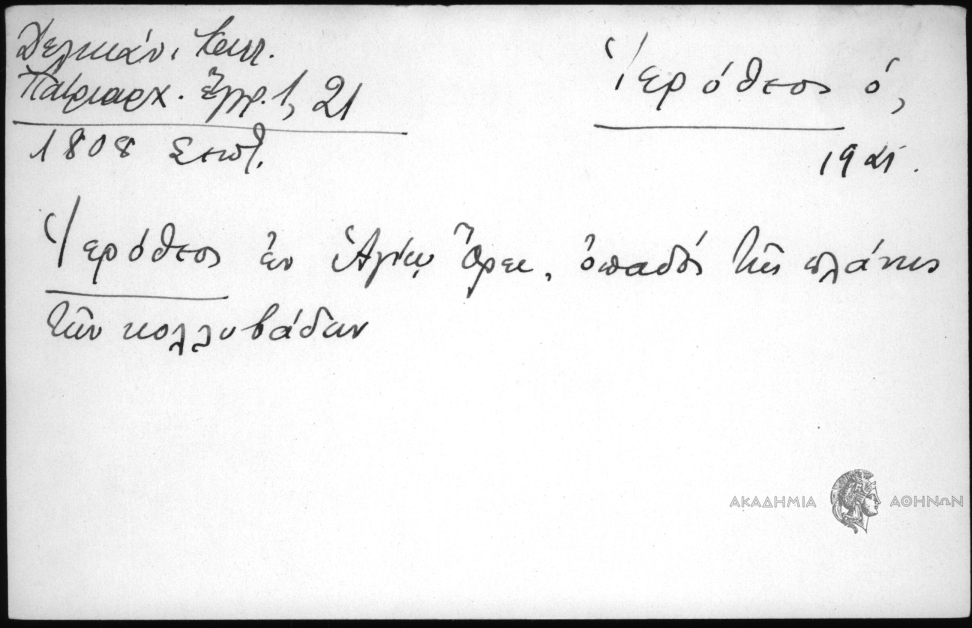 Δελικάν. Καλ.
Πατριαρχ. Ἔγγρ. 1, 21
1808 Σεπτ.
Ἱερόθεος ὁ,
19 αι.
Ἱερόθεος ἐν Ἁγίῳ Ὄρει, ὀπαδὸς τῆς πλάνης
τῶν κολλυβάδων
ΑΚΑΔΗΜΙΑ ΑΘΗΝΩΝ